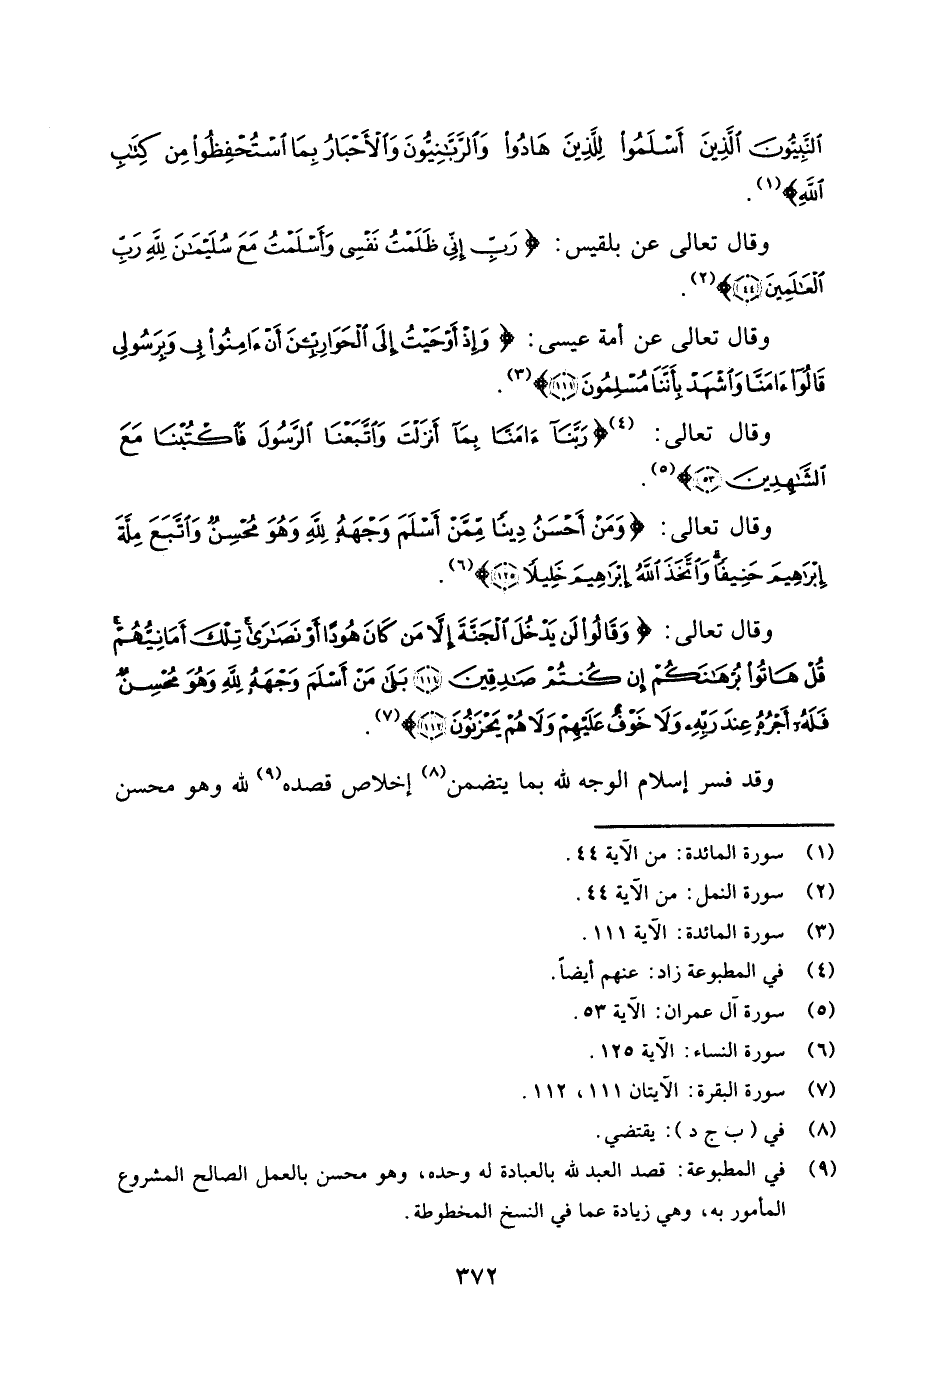 ٱلنَّبِيُّونَ ٱلَّذِينَ أَسْلَمُوا۟ لِلَّذِينَ هَادُوا۟ وَٱلرَّبَّـٰنِيُّونَ وَٱلْأَحْبَارُ بِمَا ٱسْتُحْفِظُوا۟ مِن كِتَـٰبِ
ٱللَّهِ﴾(١).
وقال تعالى عن بلقيس: ﴿رَبِّ إِنِّى ظَلَمْتُ نَفْسِى وَأَسْلَمْتُ مَعَ سُلَيْمَـٰنَ لِلَّهِ رَبِّ
ٱلْعَـٰلَمِينَ ٤٤﴾(٢).
وقال تعالى عن أمة عيسى: ﴿وَإِذْ أَوْحَيْتُ إِلَى ٱلْحَوَارِيِّـۧنَ أَنْ ءَامِنُوا۟ بِى وَبِرَسُولِى
قَالُوٓا۟ ءَامَنَّا وَٱشْهَدْ بِأَنَّنَا مُسْلِمُونَ ١١١﴾(٣).
وقال تعالى: (٤)﴿رَبَّنَآ ءَامَنَّا بِمَآ أَنزَلْتَ وَٱتَّبَعْنَا ٱلرَّسُولَ فَٱكْتُبْنَا مَعَ
ٱلشَّـٰهِدِينَ ٥٣﴾(٥).
وقال تعالى: ﴿وَمَنْ أَحْسَنُ دِينًا مِّمَّنْ أَسْلَمَ وَجْهَهُۥ لِلَّهِ وَهُوَ مُحْسِنٌ وَٱتَّبَعَ مِلَّةَ
إِبْرَٰهِيمَ حَنِيفًا ۗ وَٱتَّخَذَ ٱللَّهُ إِبْرَٰهِيمَ خَلِيلًا ١٢٥﴾(٦).
وقال تعالى: ﴿وَقَالُوا۟ لَن يَدْخُلَ ٱلْجَنَّةَ إِلَّا مَن كَانَ هُودًا أَوْ نَصَـٰرَىٰ ۗ تِلْكَ أَمَانِيُّهُمْ ۗ
قُلْ هَاتُوا۟ بُرْهَـٰنَكُمْ إِن كُنتُمْ صَـٰدِقِينَ ١١١ بَلَىٰ مَنْ أَسْلَمَ وَجْهَهُۥ لِلَّهِ وَهُوَ مُحْسِنٌ
فَلَهُۥٓ أَجْرُهُۥ عِندَ رَبِّهِۦ وَلَا خَوْفٌ عَلَيْهِمْ وَلَا هُمْ يَحْزَنُونَ ١١٢﴾(٧).
وقد فسر إسلام الوجه لله بما يتضمن(٨) إخلاص قصده(٩) لله وهو محسن
(١) سورة المائدة: من الآية ٤٤.
(٢) سورة النمل: من الآية ٤٤.
(٣) سورة المائدة: الآية ١١١.
(٤) في المطبوعة زاد: عنهم أيضاً.
(٥) سورة آل عمران: الآية ٥٣.
(٦) سورة النساء: الآية ١٢٥.
(٧) سورة البقرة: الآيتان ١١١، ١١٢.
(٨) في (ب ج د): يقتضي.
(٩) في المطبوعة: قصد العبد لله بالعبادة له وحده، وهو محسن بالعمل الصالح المشروع
المأمور به، وهي زيادة عما في النسخ المخطوطة.
٣٧٢